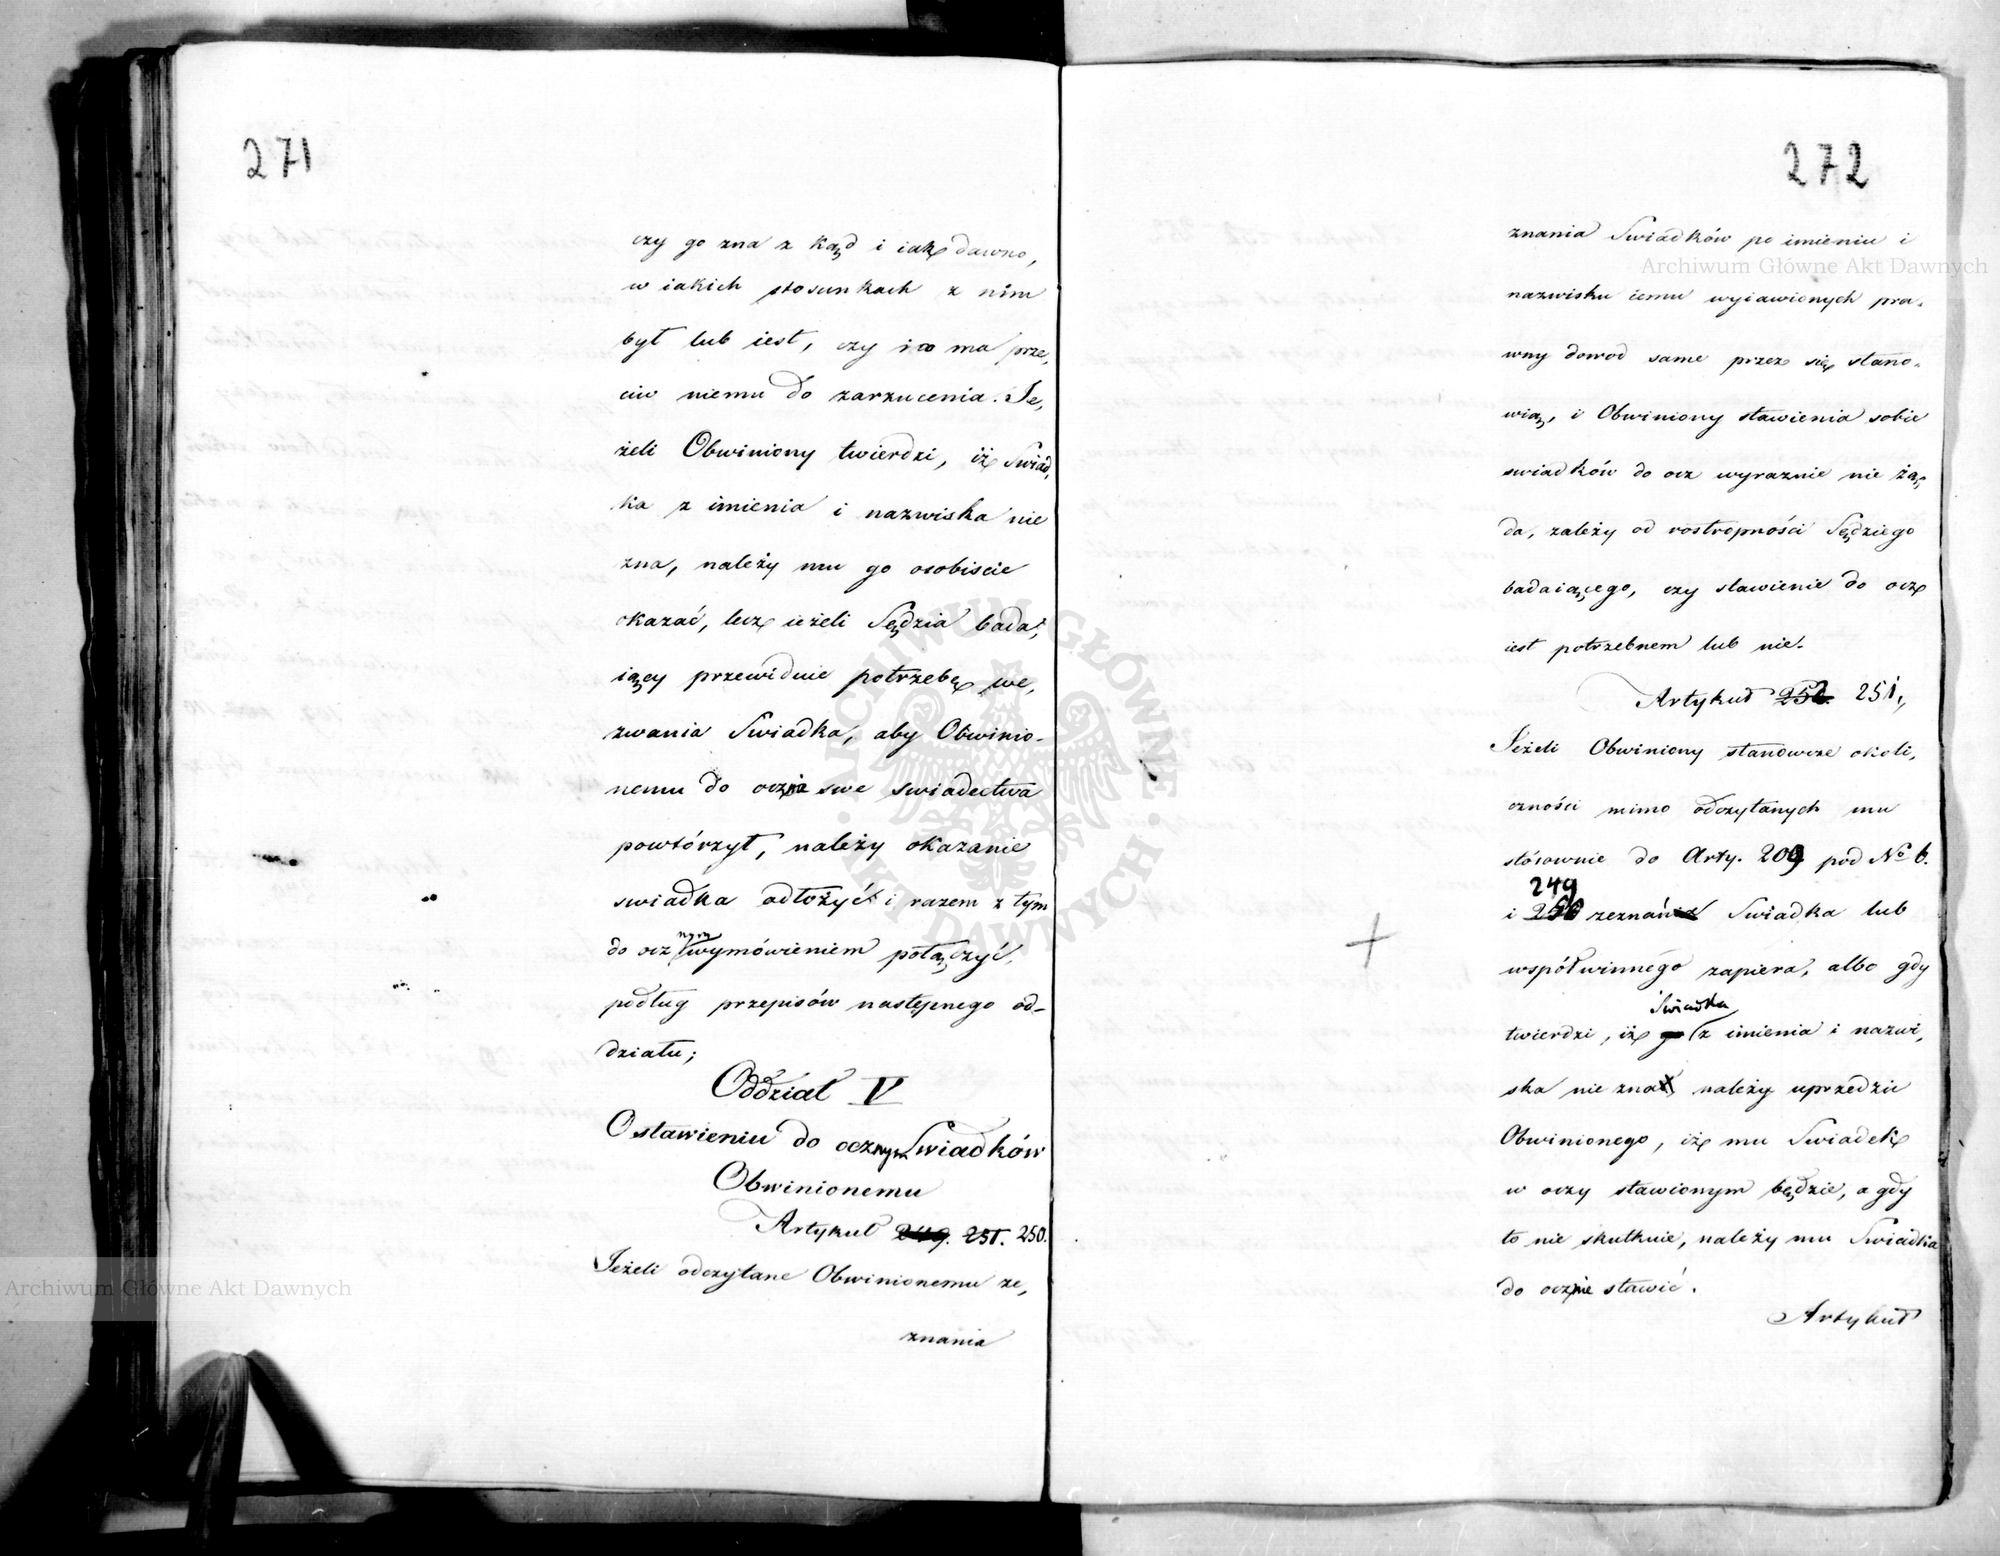 271
czy go zna z kąd i iak dawno,
w iakich stosunkach z nim
był lub iest, czy co ma prze,
ciw niemu do zarzucenia. Je,
żeli Obwiniony twierdzi, iż Swiad,
ka z imienia i nazwiska nie
zna, należy mu go osobiscie
okazać, lecz ieżeli Sędzia bada,
iący przewiduie potrzebę we,
zwania Swiadka, aby Obwinio-
nemu do ocznie swe swiadectwa
powtórzył, należy okazanie
swiadka odłożyć i razem z tym
nym
do ocz wymówieniem połączyć,
podług przepisów następnego od-
działu;
Oddział V
O stawieniu do ocznym Swiadków
Obwinionemu
Artykuł 249. 251. 250.
Jeżeli odczytane Obwinionemu ze,
znania
272
znania Swiadków po imieniu i
nazwisku iemu wyiawionych pra,
wny dowod same przez się stano-
wią, i Obwiniony stawienia sobie
swiadków do ocz wyraznie nie żą,
da, zależy od rostropności Sędziego
badaiącego, czy stawienie do ocz
iest potrzebnem lub nie.
Artykuł 252. 251.
Jeżeli Obwiniony stanowcze okoli,
czności mimo odczytanych mu
stósownie do Arty. 209 pod No 6.
249
i 250 zeznań Swiadka lub
współwinnego zapiera, albo gdy
Swiadka
twierdzi, iż go z imienia i nazwi,
ska nie zna należy uprzedzić
Obwinionego, iż mu Swiadek
w oczy stawionym będzie, a gdy
to nie skutkuie, należy mu Swiadka
do ocznie stawić.
Artykuł
Archiwum Główne Akt Dawnych
Archiwum Główne Akt Dawnych
ARCHIWUM GŁÓWNE · AKT DAWNYCH ·